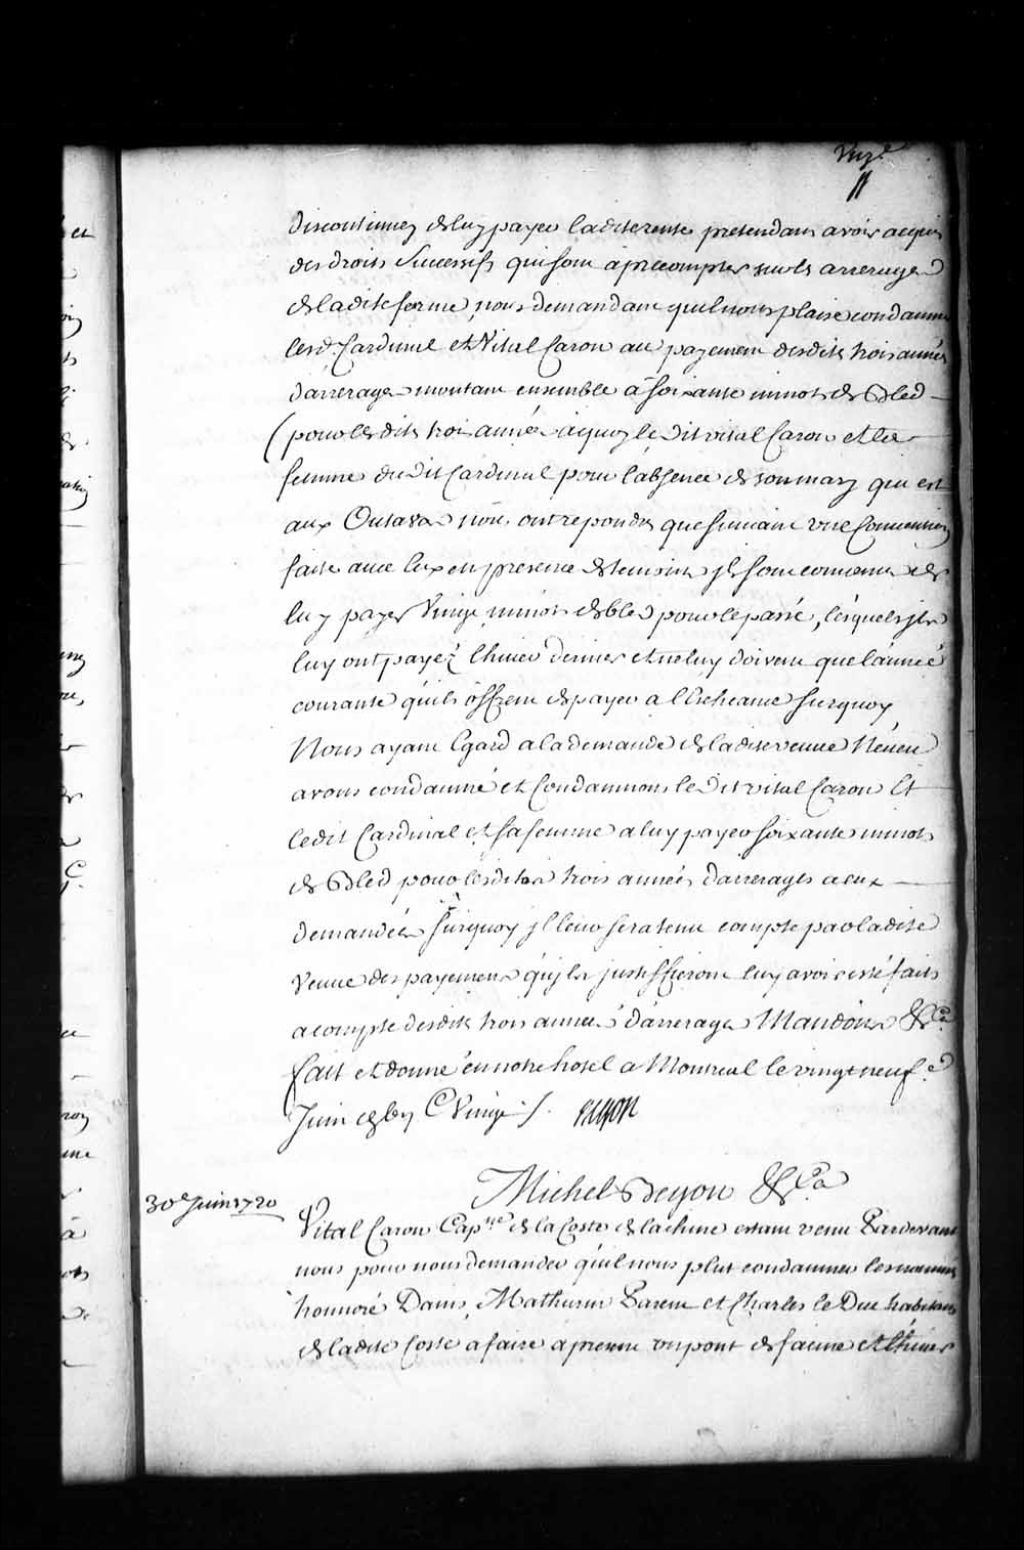 Unz.e
11
discontinuez de luy payer ladite rente pretendans avoir acquis
des droits Successifs qui sont a precompter sur les arrerages
de ladite ferme, nous demandant quil nous plaise condamner
lesd. Cardinal et Vital Caron au payement desdits trois années
d'arrerages montant ensemble a soixante minots de Bled
pour lesdits trois années aquoy le dit vital Caron et la
femme du dit Cardinal pour l'absence de son mary qui est
aux Outavas nous ont repondu que suivant une Convention
faite avec eux en presence de temoins jls sont convenus de
luy payer Vingt minots de bled pour le passé, lesquels jls
luy ont payez l'hiver dernier et ne luy doivent que l'année
courante quils offrent de payer a l'Echeance surquoy
Nous ayant Egard a la demande de ladite veuve Neveu
avons condamné et Condamnons le dit vital Caron Et
ledit Cardinal et sa femme a luy payer soixante minots
de Bled pour lesdites trois années d'arrerages a eux
demandées surquoy jl leur sera tenu compte par ladite
veuve des payemens qu'jls justiffieront luy avoir esté faits
a compte desdits trois années d'arrerages Mandons &c.a
fait et donné en notre hotel a Montreal le vingt neuf.e
Juin vij C Vingt /. Begon
Michel Begon &c.a
30e Juin 1720
Vital Caron Cap.ne de la Coste de lachine estant venu Pardevant
nous pour nous demander qu'il nous plut condamner les nommés
honnoré Danis, Mathurin Parent et Charles le Duc habitans
de ladite Coste a faire a present un pont de facine et